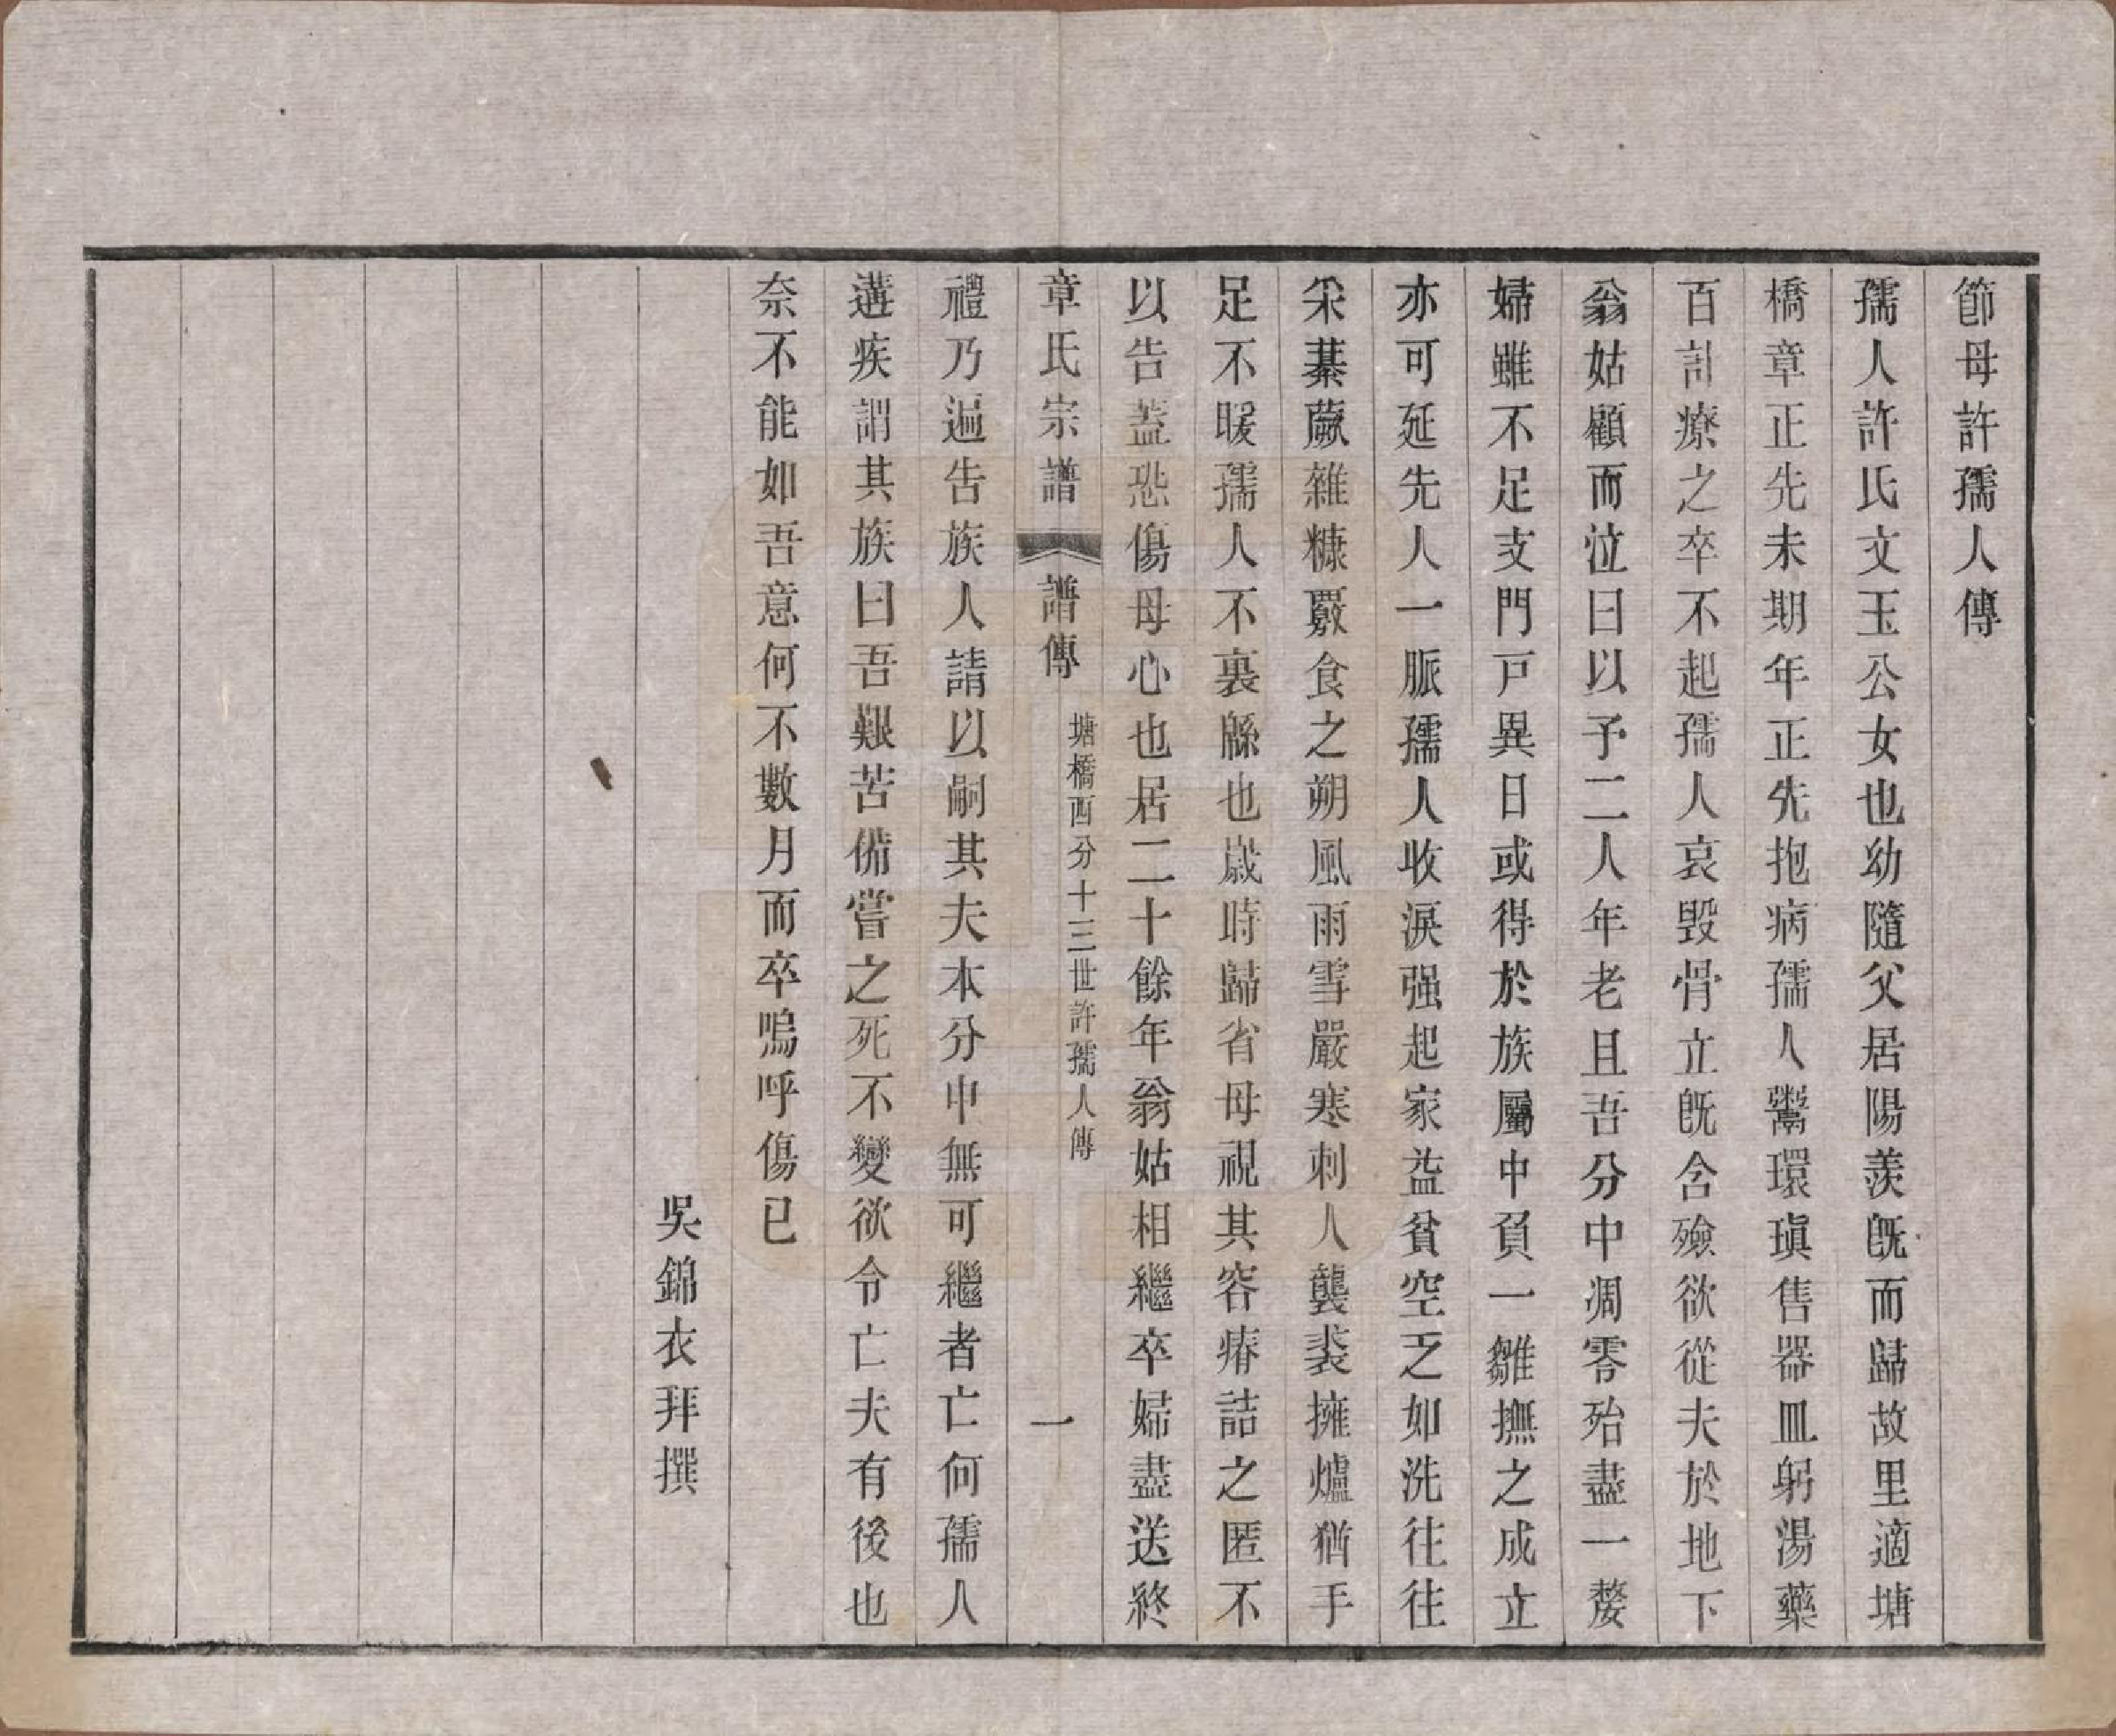 節母許孺人傳
孺人許氏文玉公女也幼隨父居陽羨旣而歸故里適塘
橋章正先未期年正先抱病孺人鬻環瑱售器皿躬湯藥
百計療之卒不起孺人哀毀骨立旣含殮欲從夫於地下
翁姑顧而泣曰以予二人年老且吾分中凋零殆盡一嫠
婦雖不足支門戸異日或得於族屬中負一雛撫之成立
亦可延先人一脈孺人收淚强起家益貧空乏如洗往往
采蓁蕨雜糠覈食之朔風雨雪嚴寒刺人襲裘擁爐猶手
足不暖孺人不裏緜也歲時歸省母視其容瘠詰之匿不
以告蓋恐傷母心也居二十餘年翁姑相繼卒婦盡送終
章氏宗譜 譜傳 塘橋西分十三世許孺人傳 一
禮乃遍告族人請以嗣其夫本分中無可繼者亡何孺人
遘疾謂其族曰吾艱苦備嘗之死不變欲令亡夫有後也
奈不能如吾意何不數月而卒嗚呼傷已
吳錦衣拜撰